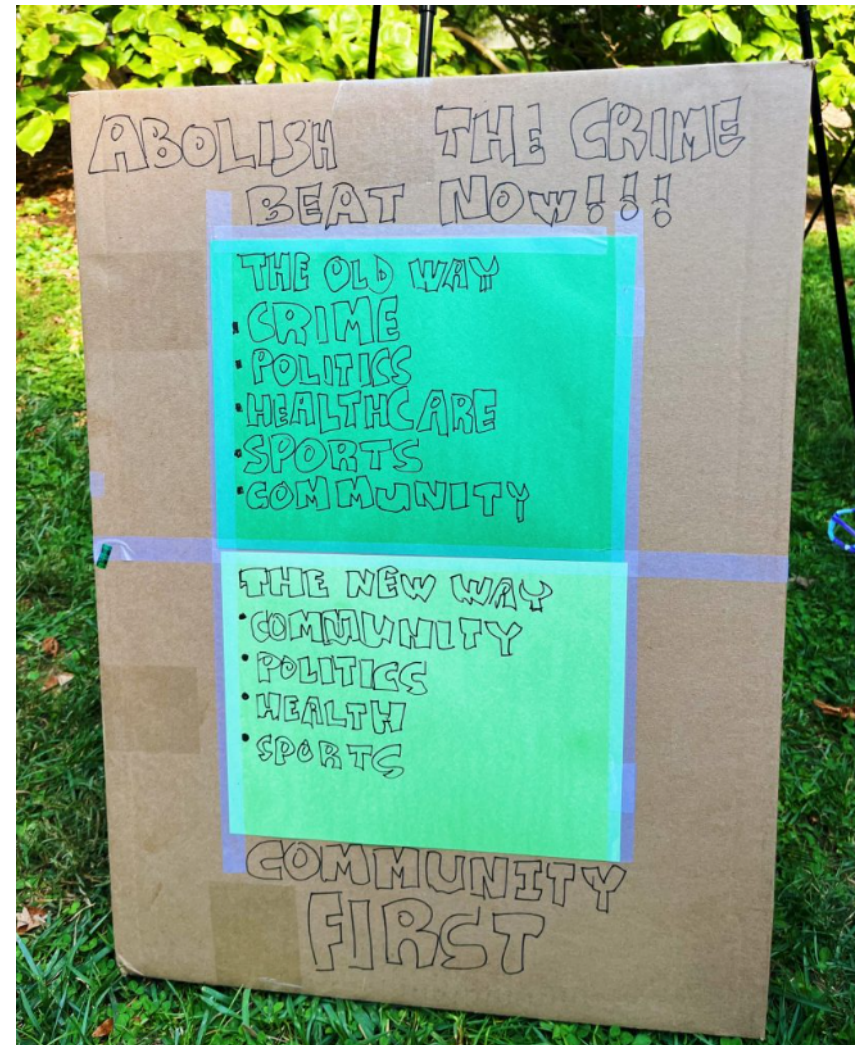 ABOLISH THE CRIME
BEAT NOW!!!
THE OLD WAY
▪ CRIME
▪ POLITICS
▪ HEALTHCARE
▪ SPORTS
▪ COMMUNITY
THE NEW WAY
• COMMUNITY
• POLITICS
• HEALTH
• SPORTS
COMMUNITY
FIRST